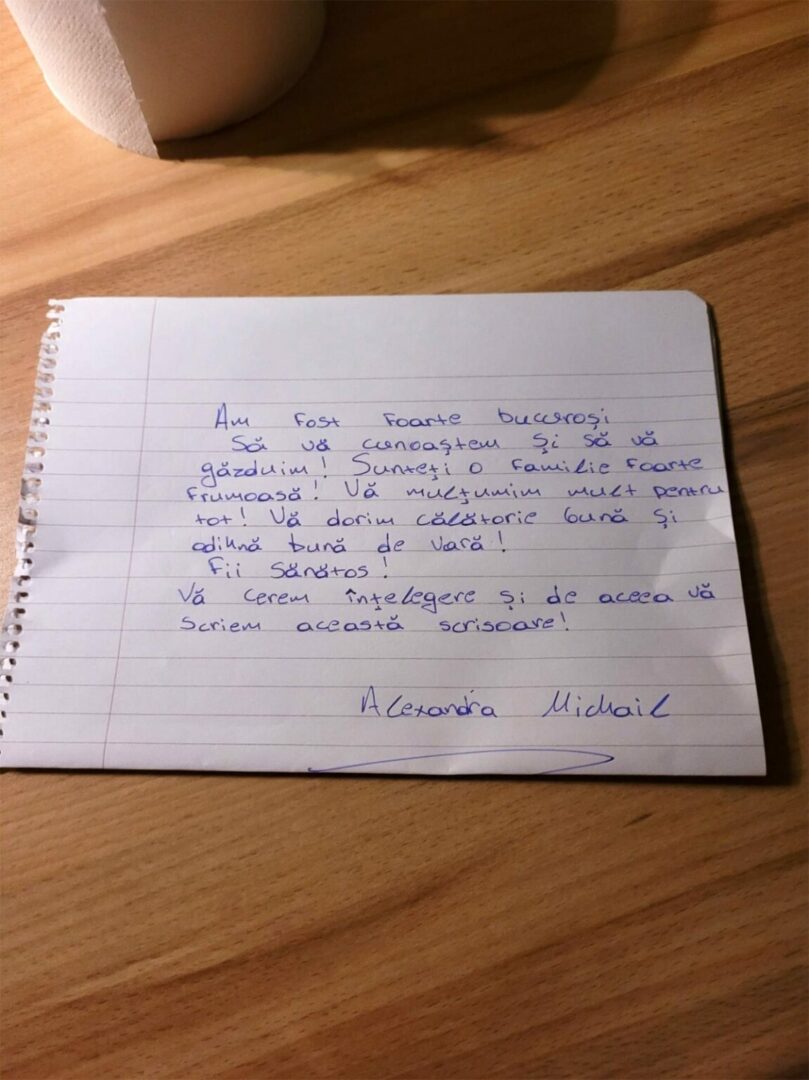 Am fost foarte bucuroși
Să vă cunoaștem și să vă
găzduim! Sunteți o familie foarte
frumoasă! Vă mulțumim mult pentru
tot! Vă dorim călătorie bună și
odihnă bună de vară!
Fii sănătos!
Vă cerem înțelegere și de aceea vă
scriem această scrisoare!
Alexandra Michail